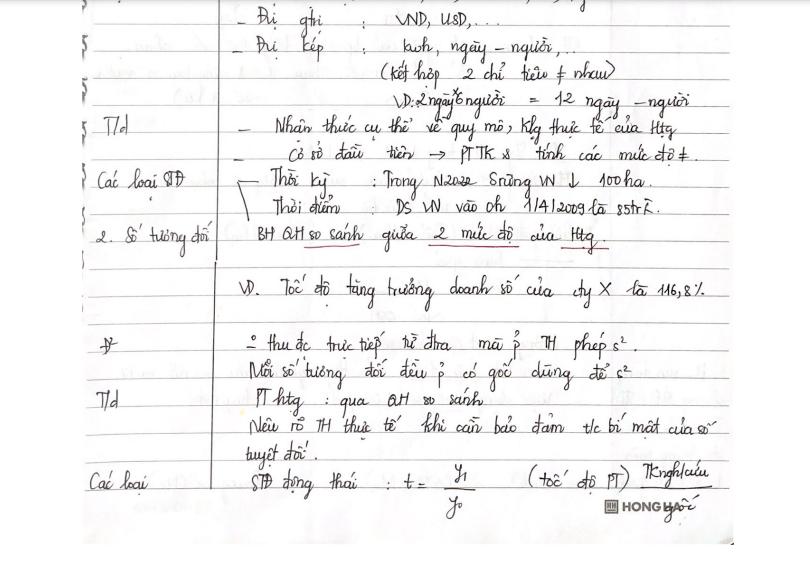 - Đvị ghi : VND, USD,...
- Đvị kép : kwh, ngày - người,..
(kết hợp 2 chỉ tiêu ≠ nhau)
VD: 2 ngày * 6 người = 12 ngày - người
T/d - Nhận thức cụ thể về quy mô, Klg thực tế của Htg
- Cơ sở đầu tiên → PTTK & tính các mức độ ≠.
Các loại STĐ Thời kỳ : Trong N2022 Srừng VN ↓ 100ha.
Thời điểm : DS VN vào 0h 1/4/2009 là 85tr
2. Số tương đối BH QH so sánh giữa 2 mức độ của Htg.
VD. Tốc độ tăng trưởng doanh số của cty X là 116,8%
thu đc trực tiếp từ đtra mà p̉ TH phép s².
Mỗi số tương đối đều p̉ có gốc dùng để s²
T/d PT htg : qua QH so sánh
Nêu rõ TH thực tế khi cần bảo đảm t/c bí mật của số
tuyệt đối.
Các loại STĐ động thái : t = y₁ / y₀ (tốc độ PT) TK nghl cứu / gốc
HONG HA